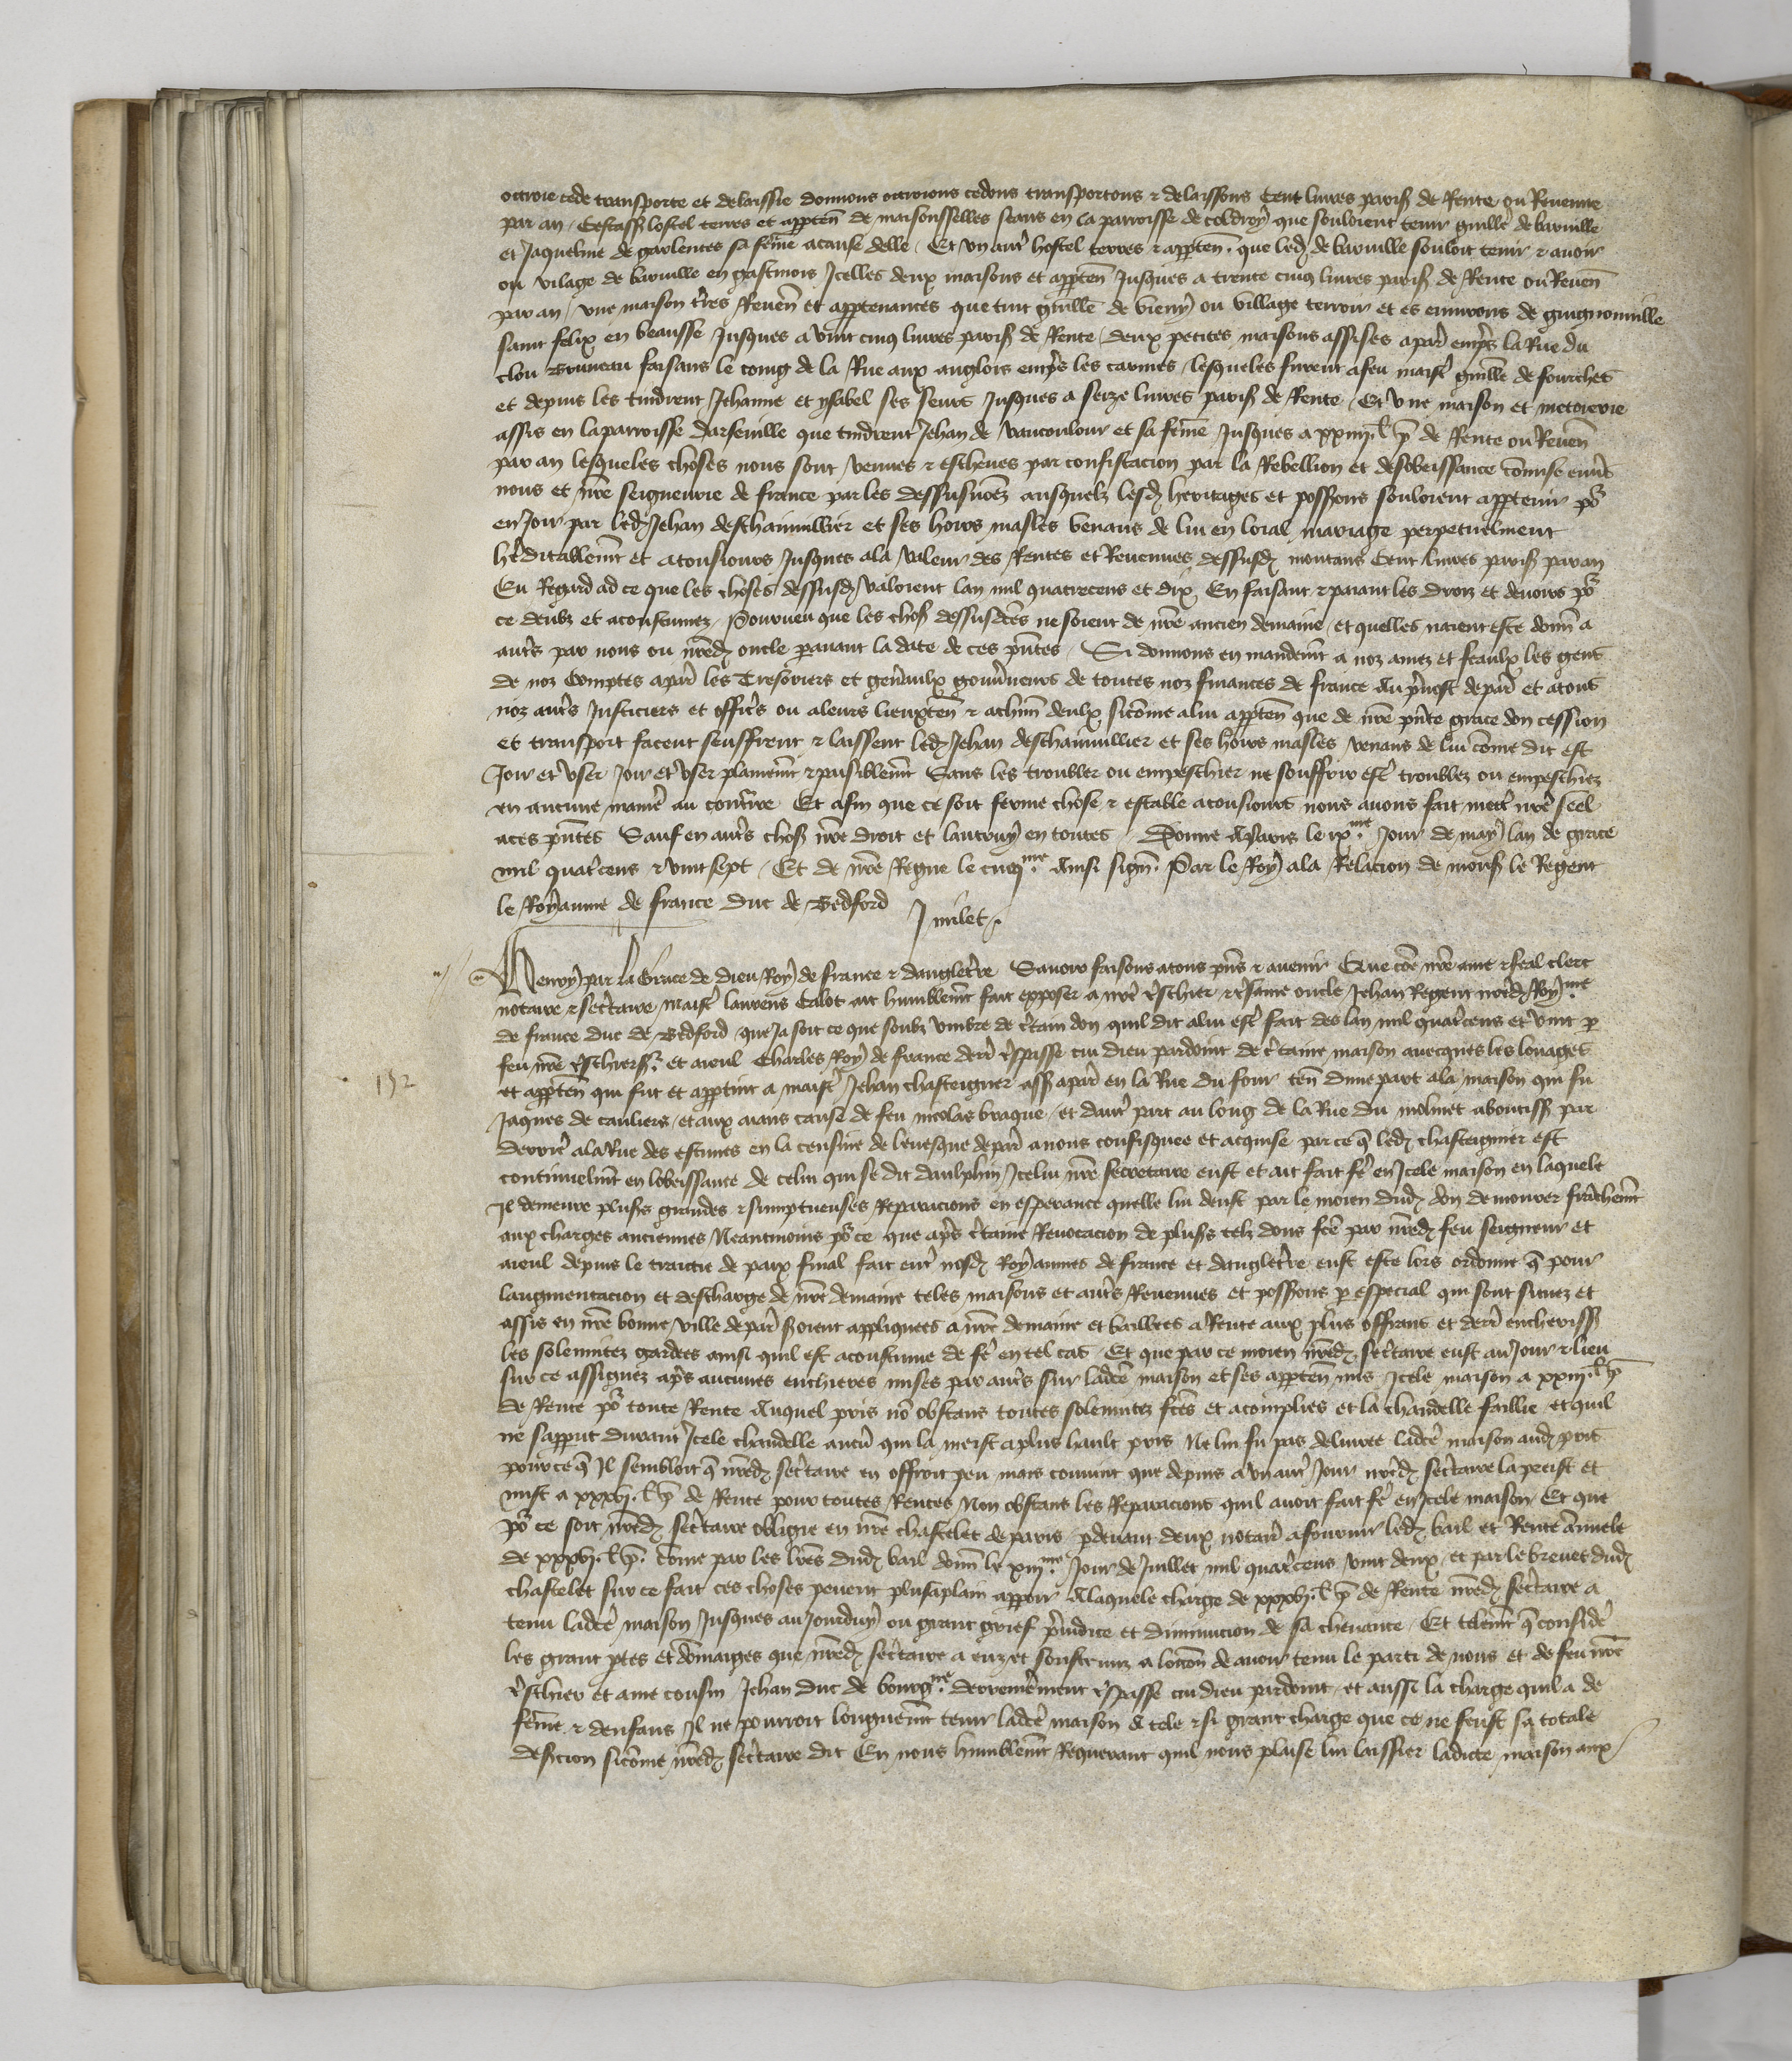 octroie cede transporte et delaissie donnons octroions cedons transportons & delaissons Cent livres paris de Rente ou Revenue
par an / Cestass lostel terres et apptēn de maisonsselles seans en la parroisse de coldroy que souloient tenir guillē de barville
et Jaqueline de garlentes sa fēme acause delle / Et un autr hostel terres & apptēn. que led de barville souloit tenir & avoir
ou vilage de barville en gastinois Icelles deux maisons et apptēn Jusques a trente cinq livres paris de Rente ou Revēn
par an / une maison tres Revēn et apptenances que tint guillē de vieny ou village terroir et es environs de guignonville
saint felix en beausse Jusques a vint cinq livres paris de Rente / deux petites maisons assises apar emps la Rue du
clou Bruneau faisans le coing de la Rue aux anglois emps les carmes / lesqueles furent afeu maist guillē de fourches
et depuis les tindrent Jehanne et ysabel ses seurs Jusques a seize livres paris de Rente / Et une maison et metoierie
assis en laparroisse darsenille que tindrent Jehan de vaucoulour et sa fēme Jusques a xxiiii. l p de Rente ou Revēn
par an lesqueles choses nous sont venues & escheues par confiscacion par la Rebellion et desobeissance cōmise envs
nous et nre seigneurie de france par les dessusnōez ausquelz lesd heritages et possions souloient apptenir po
en Joir par led Jehan deschainvillier et ses hoirs masles venans de lui en loial mariage perpetuelment
hditablemt et atousiours Jusques ala valeur des Rentes et Revenues dessusd montans Cent livres paris par an
Eu Regard ad ce que les choses dessusd valoient lan mil quatrecens et dix En faisant & paiant les droiz et devoirs po
ce deubz et acoustumez / Pourveu que les chos dessusdces ne soient de nre ancien demaine / et quelles naient este donn a
autrs par nous ou nred oncle paravant la date de ces pntes / Si donnons en mandemt a noz amez et feaulx les gens
de noz Comptes apar les Tresoriers et genraulx gouvneurs de toutes noz finances de france Au prvost depar et atous
noz autrs Justiciers et officrs ou aleurs lieuxten & achun deulx sicōme alui apptēn que de nre pnte grace don cession
et transport facent seuffrent & laissent led Jehan deschainvillier et ses hoirs masles venans de lui cōme dit est
Joir et user Joir et user plainemt & paisiblemt Sans les troubler ou empeschier ne souffrir est troublez ou empeschiez
en aucune manie au contire Et afin que ce soit ferme chose & estable atousiours nous avons fait metr nre seel
aces pntes Sauf en autrs chos nre droit et lautruy en toutes / Donne AParis le ixme Jour de may lan de grace
mil quatcens & vint sept / Et de nre Regne le cinqme. Ainsi sign. Par le Roy ala Relacion de mons le Regent
le Royaume de france duc de Bedford   J milet.
Henry par la Grace de dieu Roy de france & dangletre Savoir faisons atous pns & avenir Que cōe nre ame & feal clerc
notaire & sectaire maist laurens Calot ait humblemt fait exposer a nre treschier & tresame oncle Jehan Regent nored Royme
de france duc de Bedford que Ja soit ce que soubz umbre de ctain don quil dit alui est fait des lan mil quatcens et vint p
feu nre treschiers. et aieul Charles Roy de france derr trespasse cui dieu pardoint de ctaine maison avecques les louages
152
et apptēn qui fut et apptint a maist Jehan chasteignier ass apar en la Rue du four ten dune part ala maison qui fu
Jaques de cauliers / et aux aians cause de feu nicolas braque / et dautr part au long de la Rue du molinet aboutiss par
derrire ala Rue des estuves en la censive de levesque depar anous confisquee et acquise par ce q led chasteignier est
continuelmt en lobeissance de celui qui se dit daulphin Icelui nre secretaire eust et ait fait fe en Icele maison en laquele
Il demeure pluss grandes & sumptueuses Reparacions en esperance quelle lui deust par le moien dud don demourer franchemt
aux charges anciennes Neantmoins po ce que aps ctaine Revocacion de pluss telz dons fce par nred feu seigneur et
aieul depuis le traictie de paix final fait entr nosd Royaumes de france et dangletre eust este lors ordonne q pour
laugmentacion et descharge de nre demaine teles maisons et autrs Revenues et possions p especial qui sont situez et
assis en nre bonne ville depar soient appliquees a nre demaine et baillees a Rente aux plus offrans et derr encheriss
les solemnitez gardees ainsi quil est acoustume de fe en tel cas / Et que par ce moien nred sectaire eust au Jour & lieu
sur ce assignez aps aucunes enchieres mises par autrs sur ladce maison et ses apptēn mis Icele maison a xxiii. l p
de Rente po toute Rente Auquel pris nō obstans toutes solemnitez fces et acomplies et la chandelle faillie et quil
ne sapparut durant Icele chandelle aucū qui la meist aplus hault pris Ne lui fu pas delivree ladce maison aud pris
pource q Il sembloit q nred sectaire en offroit peu mais convint que depuis a un autr Jour nored sectaire la preist et
mist a xxxvj. l p de Rente pour toutes Rentes Non obstans les Reparacions quil avoit fait fe en Icele maison / Et que
po ce soit nred sectaire oblige en nre chastelet de paris pdevant deux notairs afournir led bail et Rente ānuele
de xxxvj. l p. cōme par les lres dud bail donn le xiiime. Jour de Juillet mil quatcens vint deux / et par le brevet dud
chastelet sur ce fait ces choses pevent plusaplain apparoir Alaquele charge de xxxvj. l p de Rente nred sectaire a
tenu ladce maison Jusques au Jourduy ou grant grief priudice et diminucion de sa chevance / Et telemt q considre
les grant ptes et dōmaiges que nred sectaire a euz et soustenuz a loccōn de avoir tenu le parti de nous et de feu nre
treschier et ame cousin Jehan duc de bourgne. derrenierement trespasse cui dieu pardoint / et aussi la charge quil a de
fēme & denfans Il ne pourroit longuemt tenir ladce maison A tele & si grant charge que ce ne feust sa totale
desercion sicōme nred sectaire dit En nous humblemt Requerant quil nous plaise lui laissier ladicte maison aux